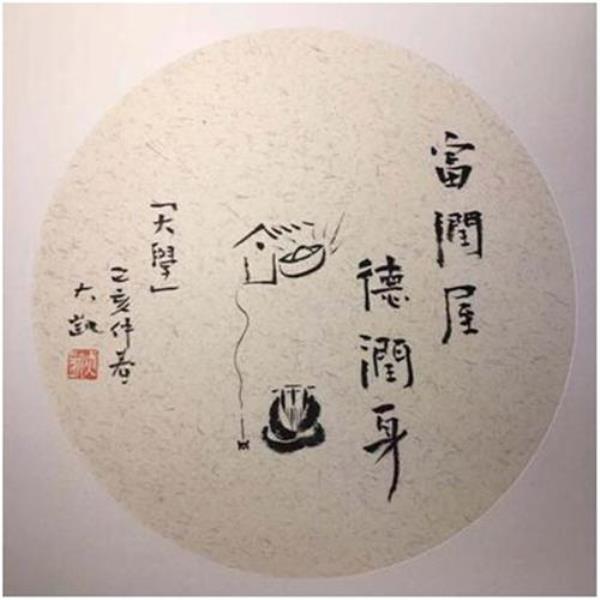 富潤屋
德潤身
「大學」
乙亥仲春
大凱